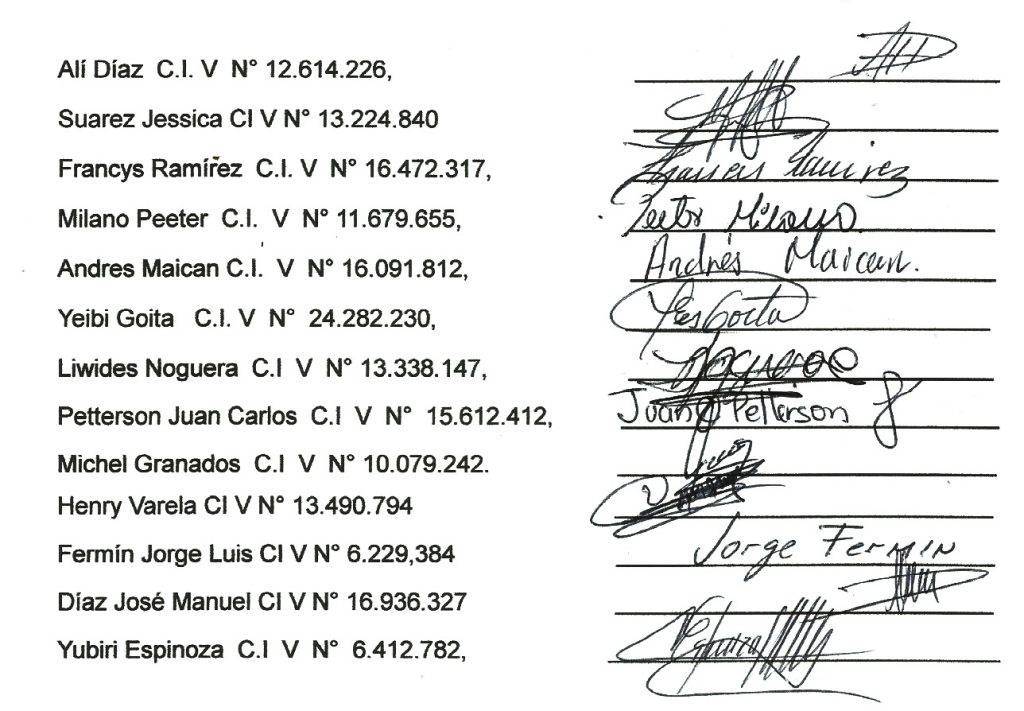 Alí Díaz C.I. V N° 12.614.226,
Suarez Jessica CI V N° 13.224.840
Francys Ramírez C.I. V N° 16.472.317, Francys Ramirez
Milano Peeter C.I. V N° 11.679.655, Peeter Milano
Andres Maican C.I. V N° 16.091.812, Andrés Maican.
Yeibi Goita C.I. V N° 24.282.230, Goita
Liwides Noguera C.I V N° 13.338.147,
Petterson Juan Carlos C.I V N° 15.612.412, Juan Petterson
Michel Granados C.I V N° 10.079.242.
Henry Varela CI V N° 13.490.794
Fermín Jorge Luis CI V N° 6.229,384 Jorge Fermin
Díaz José Manuel CI V N° 16.936.327
Yubiri Espinoza C.I V N° 6.412.782,